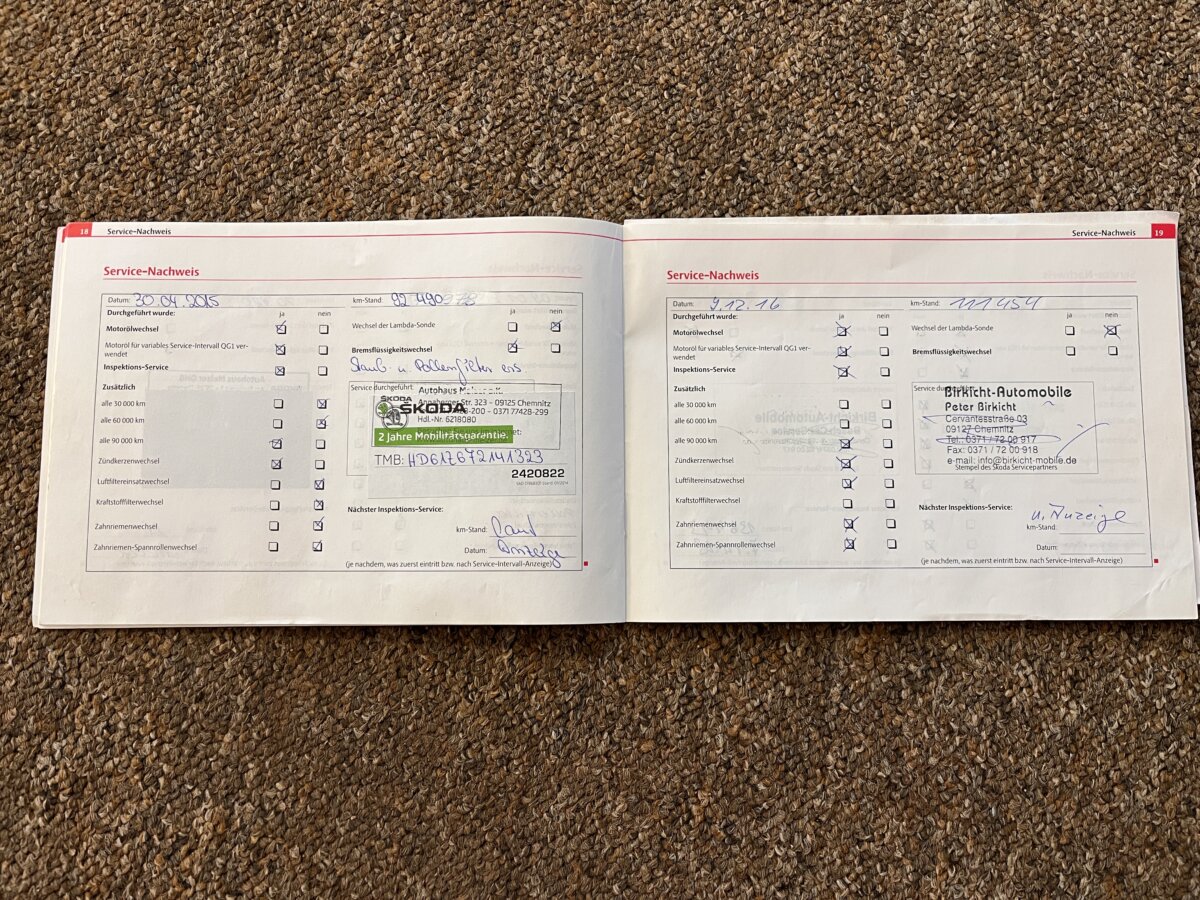 18 Service-Nachweis
Service-Nachweis
Datum: 30.04.2015 km-Stand: 92 490
Durchgeführt wurde: ja nein ja nein
Motorölwechsel Wechsel der Lambda-Sonde
Motoröl für variables Service-Intervall QG1 ver-
wendet
Bremsflüssigkeitswechsel
Inspektions-Service
Staub- u. Pollenfilter ers
Zusätzlich
Service durchgeführt:
Autohaus
alle 30 000 km
Annaberger Str. 323 - 09125 Chemnitz
ŠKODA
ŠKODA
-200 - 0371 77428-299
Hdl.-Nr. 6218080
alle 60 000 km
2 Jahre Mobilitätsgarantie.
alle 90 000 km
TMB: HD61Z672141323
2420822
Zündkerzenwechsel
Luftfiltereinsatzwechsel
Kraftstofffilterwechsel
Nächster Inspektions-Service:
Zahnriemenwechsel
km-Stand: laut
Zahnriemen-Spannrollenwechsel
Datum: Anzeige
(je nachdem, was zuerst eintritt bzw. nach Service-Intervall-Anzeige)
Service-Nachweis 19
Service-Nachweis
Datum: 9.12.16 km-Stand: 111 454
Durchgeführt wurde: ja nein ja nein
Motorölwechsel Wechsel der Lambda-Sonde
Motoröl für variables Service-Intervall QG1 ver-
wendet
Bremsflüssigkeitswechsel
Inspektions-Service
Zusätzlich
Service
Birkicht-Automobile
Peter Birkicht
alle 30 000 km
Cervantesstraße 03
alle 60 000 km
09127 Chemnitz
alle 90 000 km
Tel.: 0371 / 72 00 917
Fax: 0371 / 72 00 918
Zündkerzenwechsel
e-mail: info@birkicht-mobile.de
Stempel des Škoda Servicepartners
Luftfiltereinsatzwechsel
Kraftstofffilterwechsel
Nächster Inspektions-Service:
n. Anzeige
Zahnriemenwechsel
km-Stand:
Zahnriemen-Spannrollenwechsel
Datum:
(je nachdem, was zuerst eintritt bzw. nach Service-Intervall-Anzeige)